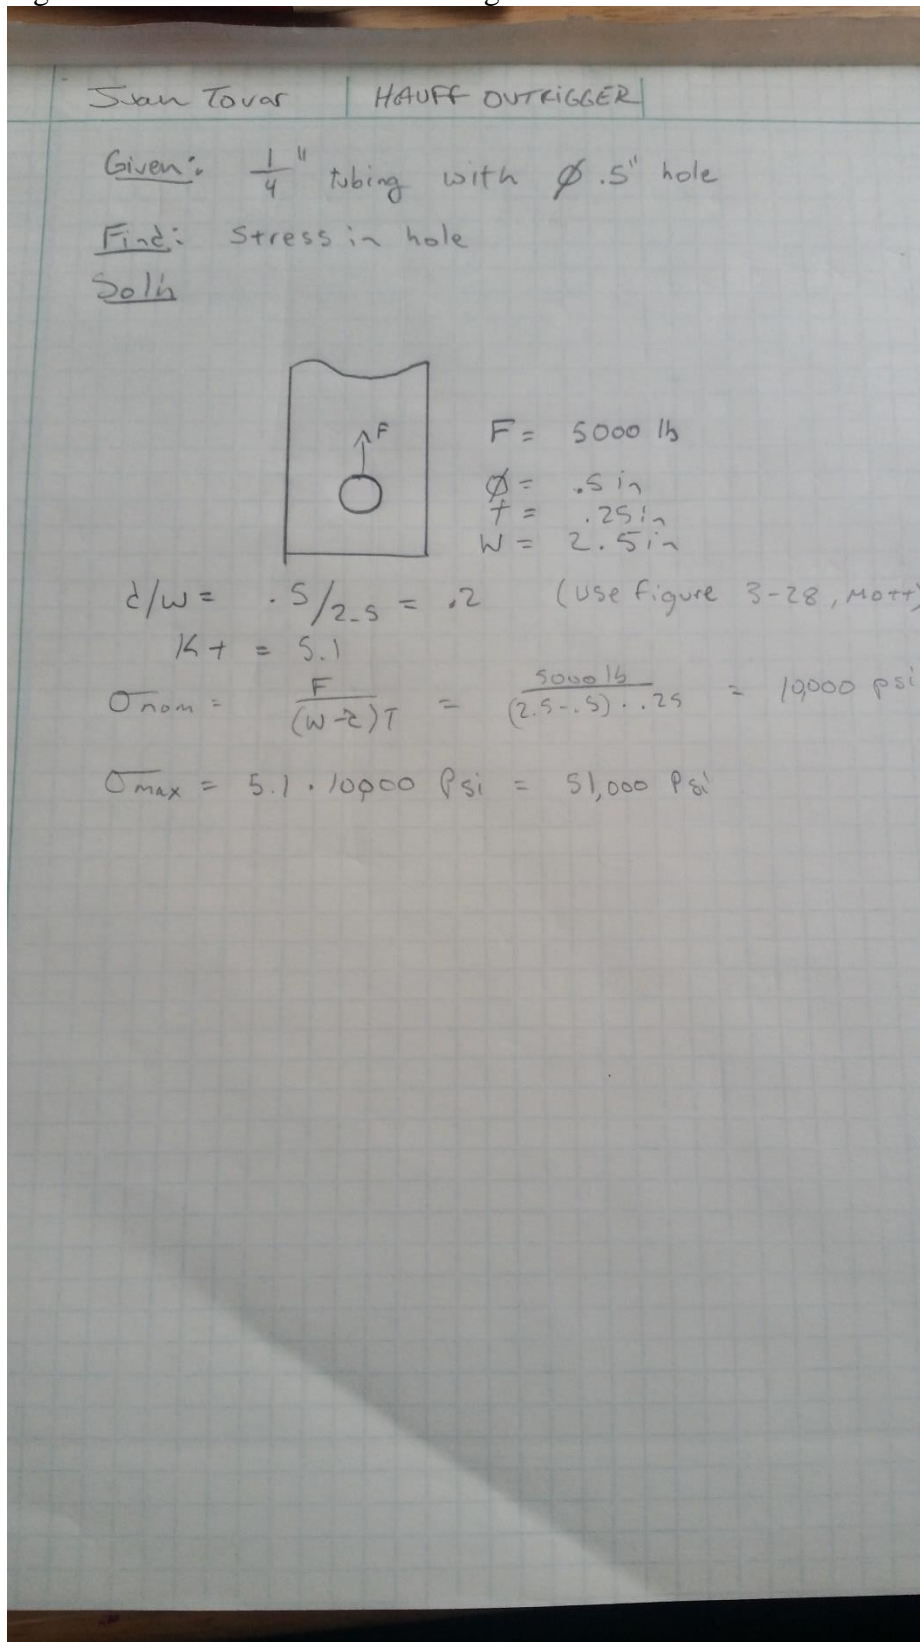 Juan Tovar HAUFF OUTRIGGER
Given: 1/4" tubing with Ø .5" hole
Find: Stress in hole
Sol'n
F
F = 5000 lb
Ø = .5 in
t = .25 in
W = 2.5 in
d/w = .5/2.5 = .2 (use figure 3-28, Mott)
Kt = 5.1
σnom = F/((W-d)T) = 5000 lb/((2.5-.5)·.25) = 10,000 psi
σmax = 5.1 · 10,000 Psi = 51,000 Psi